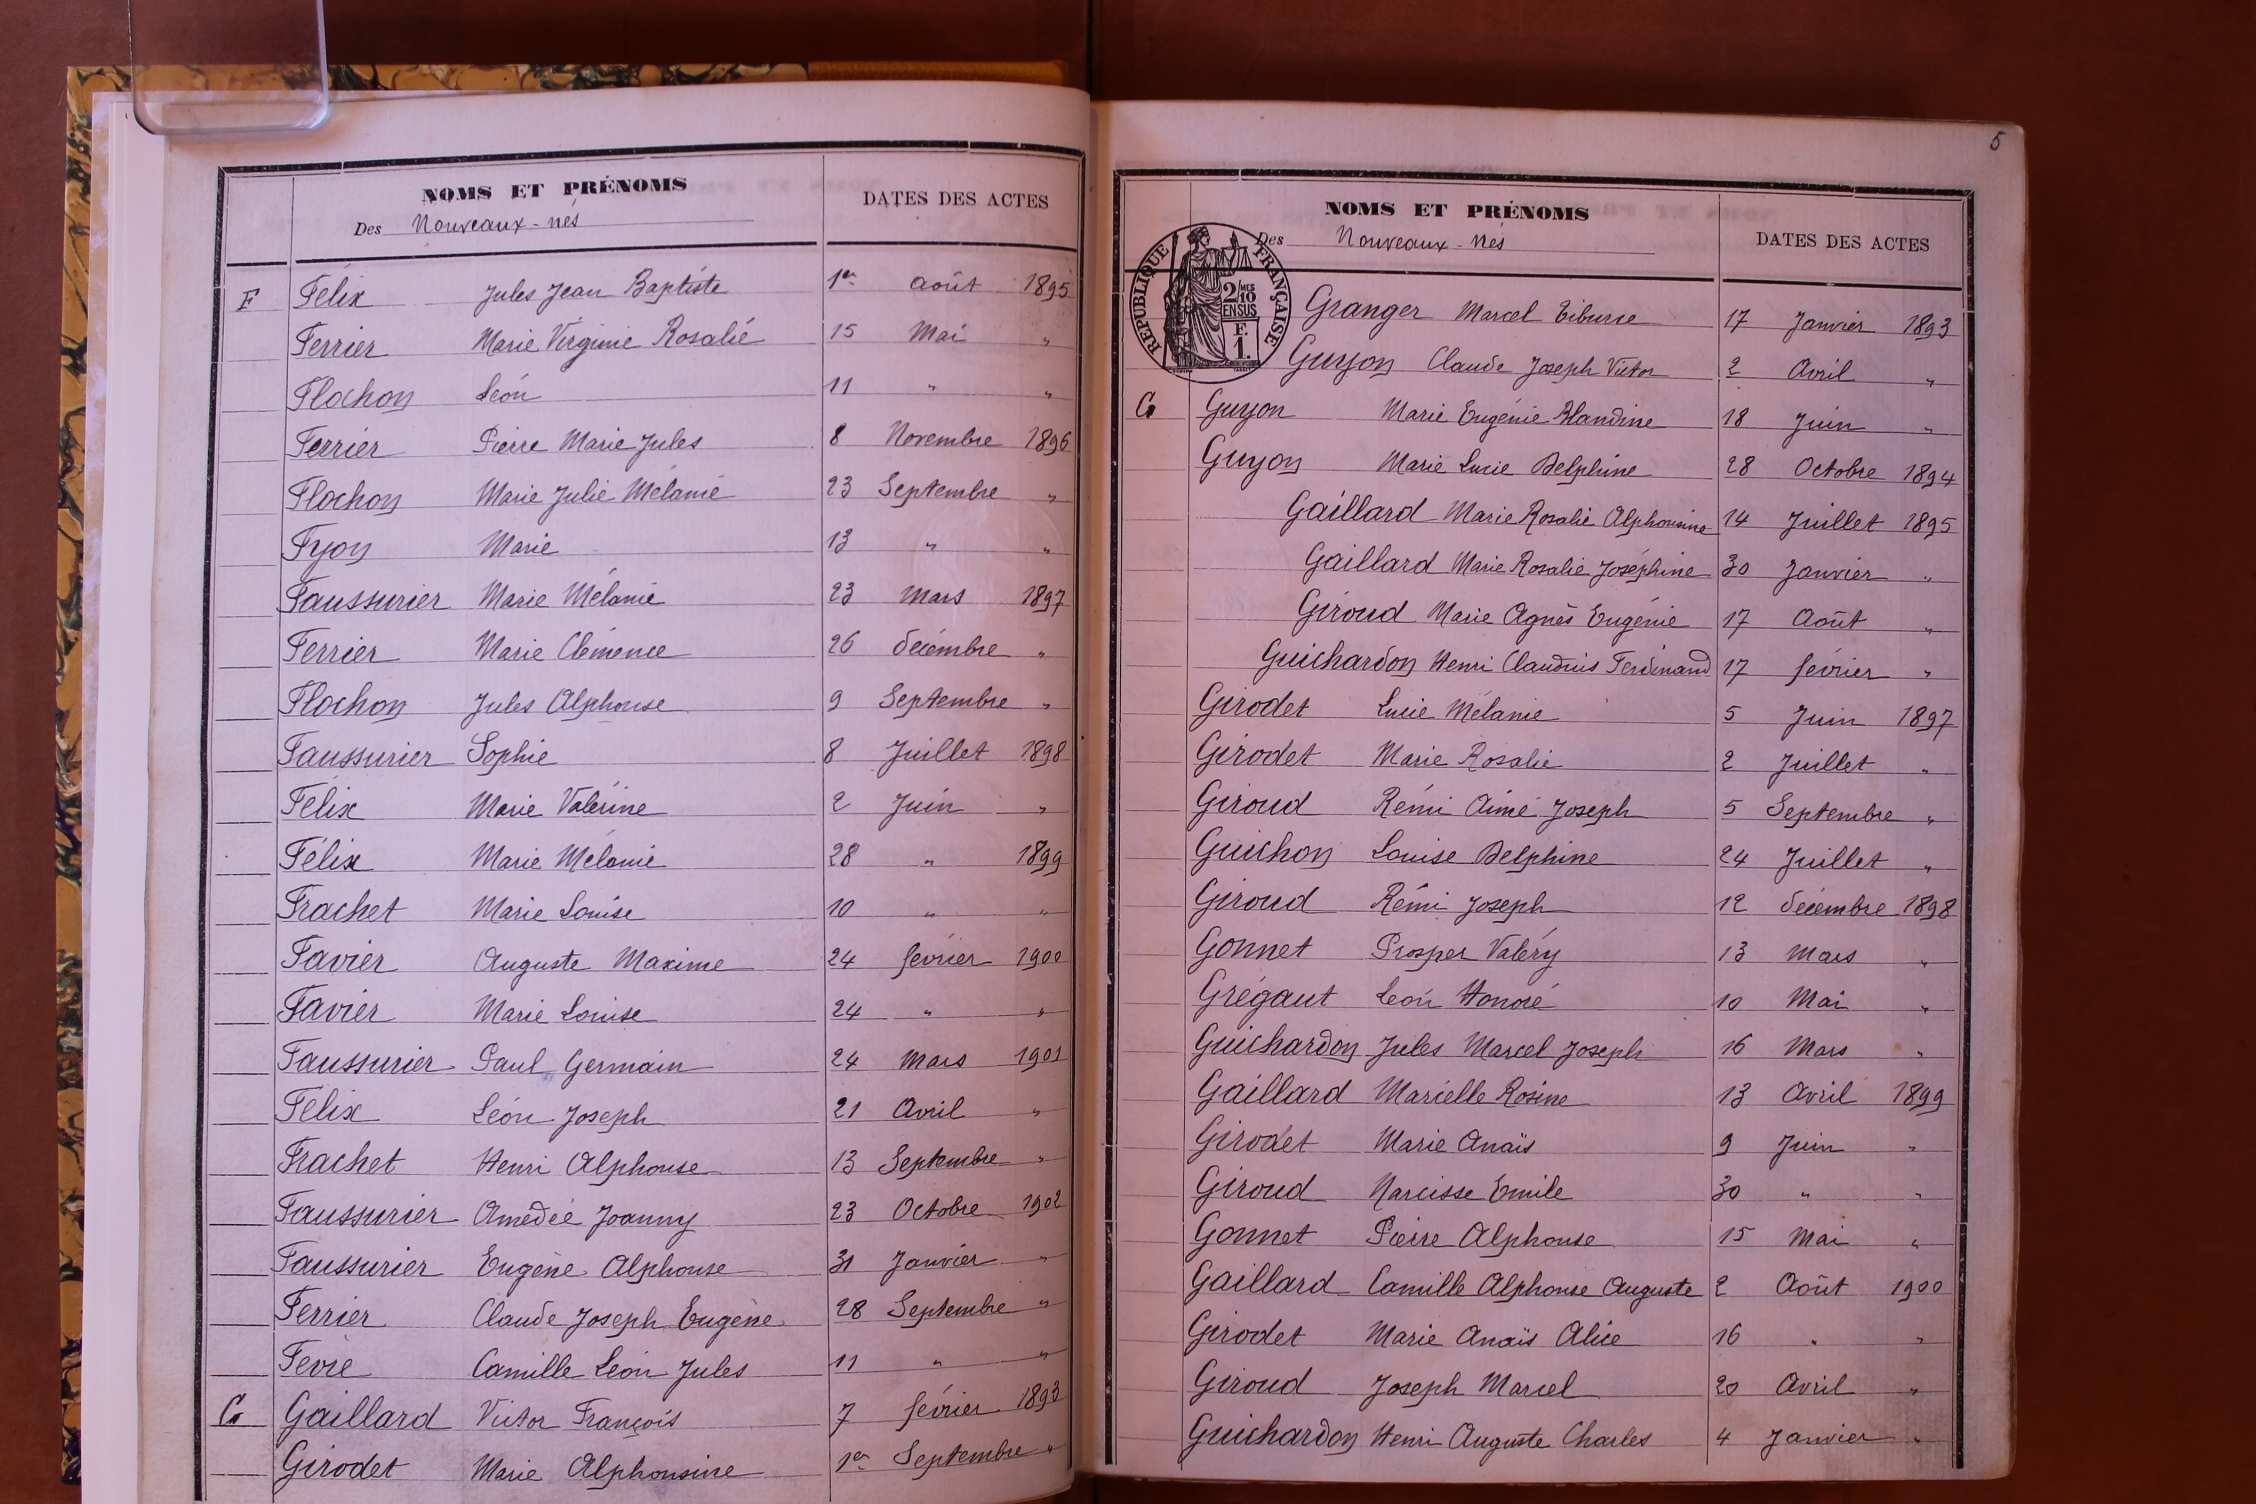 NOMS ET PRÉNOMS
DATES DES ACTES
Des Nouveaux-nés
F Félix Jules Jean Baptiste 1er août 1895
Ferrier Marie Virginie Rosalie 15 Mai "
Flochon Léon 11 " "
Ferrier Pierre Marie Jules 8 Novembre 1896
Flochon Marie Julie Mélanie 23 Septembre "
Fyon Marie 13 " "
Faussurier Marie Mélanie 23 Mars 1897
Ferrier Marie Clémence 26 décembre "
Flochon Jules Alphonse 9 Septembre "
Faussurier Sophie 8 Juillet 1898
Félix Marie Valérine 2 Juin "
Félix Marie Mélanie 28 " 1899
Frachet Marie Louise 10 " "
Favier Auguste Maxime 24 février 1900
Favier Marie Louise 24 " "
Faussurier Paul Germain 24 Mars 1901
Félix Léon Joseph 21 Avril "
Frachet Henri Alphonse 13 Septembre "
Faussurier Amédée Joanny 23 Octobre 1902
Faussurier Eugène Alphonse 31 Janvier "
Ferrier Claude Joseph Eugène 28 Septembre "
Fevre Camille Léon Jules 11 " "
G Gaillard Victor François 7 février 1893
Girodet Marie Alphonsine 1er Septembre "
5
NOMS ET PRÉNOMS
DATES DES ACTES
Des Nouveaux-nés
RÉPUBLIQUE FRANÇAISE
2/10 MES
EN SUS
F.
1.
Granger Marcel Tiburce 17 Janvier 1893
Guyon Claude Joseph Victor 2 Avril "
G Guyon Marie Eugénie Blandine 18 Juin "
Guyon Marie Lucie Delphine 28 Octobre 1894
Gaillard Marie Rosalie Alphonsine 14 Juillet 1895
Gaillard Marie Rosalie Joséphine 30 Janvier "
Giroud Marie Agnès Eugénie 17 Août "
Guichardon Henri Claudius Ferdinand 17 février "
Girodet Lucie Mélanie 5 Juin 1897
Girodet Marie Rosalie 2 Juillet "
Giroud Rémi Aimé Joseph 5 Septembre "
Guichon Louise Delphine 24 Juillet "
Giroud Rémi Joseph 12 décembre 1898
Gonnet Prosper Valéry 13 Mars "
Grégaut Léon Honoré 10 Mai "
Guichardon Jules Marcel Joseph 16 Mars "
Gaillard Marielle Rosine 13 Avril 1899
Girodet Marie Anaïs 9 Juin "
Giroud Narcisse Emile 30 " "
Gonnet Pierre Alphonse 15 Mai "
Gaillard Camille Alphonse Auguste 2 Août 1900
Girodet Marie Anaïs Alice 16 " "
Giroud Joseph Marcel 20 Avril "
Guichardon Henri Auguste Charles 4 Janvier "